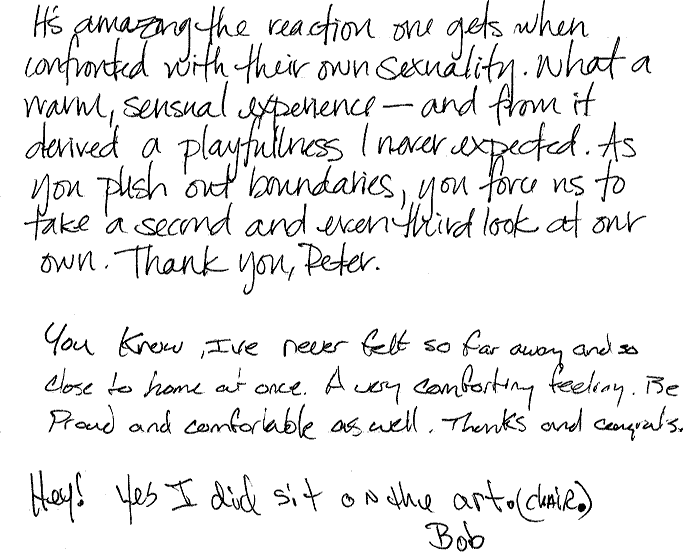 It's amazing the reaction one gets when
confronted with their own sexuality. What a
warm, sensual experience — and from it
derived a playfullness I never expected. As
you push out boundaries, you force us to
take a second and even third look at our
own. Thank you, Peter.
You know, I've never felt so far away and so
close to home at once. A very comforting feeling. Be
Proud and comfortable as well. Thanks and congrats.
Hey! Yes I did sit on the art. (CHAIR.)
Bob